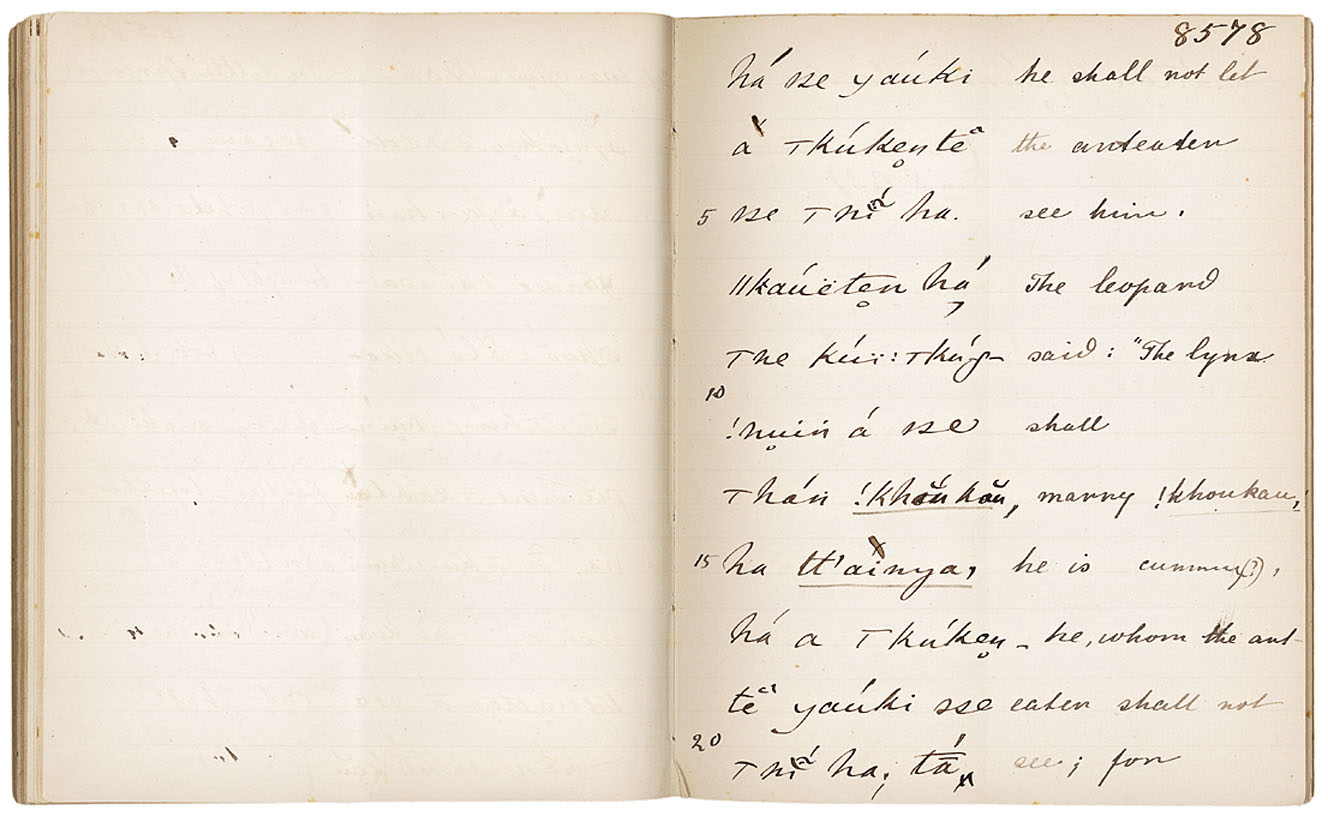 8578
há sse yaúki he shall not let
á Tkúken̥tĕ the anteater
5 sse Tní ha. see him.
ǁkaúëten̥ há̦ The leopard
Tne kúï: Tkúǥ- said: "The lynx
10
!nu̥iń á sse shall
Thán !khŏúkŏu, marry !khoukau,
15 ha tt'aìnya, he is cunning(?),
há a Tkúken̥- he, whom the ant-
tĕ yaúki sse eater shall not
20
Tní ha; tā́, see; for